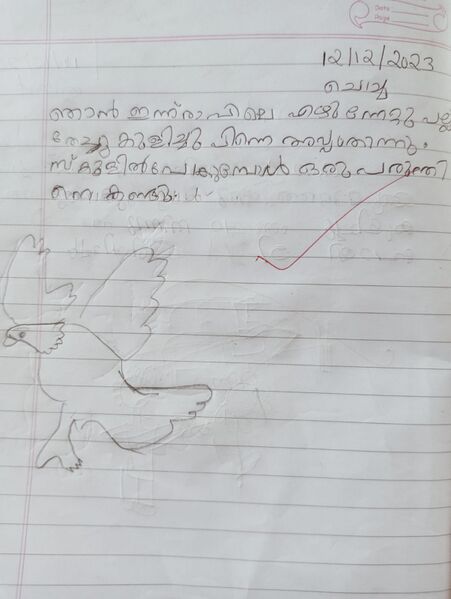 Date :
Page :
12/12/2023
ചൊവ്വ
ഞാൻ ഇന്ന് രാവിലെ എഴുന്നേറ്റു പല്ലു
തേച്ചു കുളിച്ചു പിന്നെ
സ്കൂളിൽ പോകുമ്പോൾ ഒരു പരുന്തി
നെ കണ്ടു.